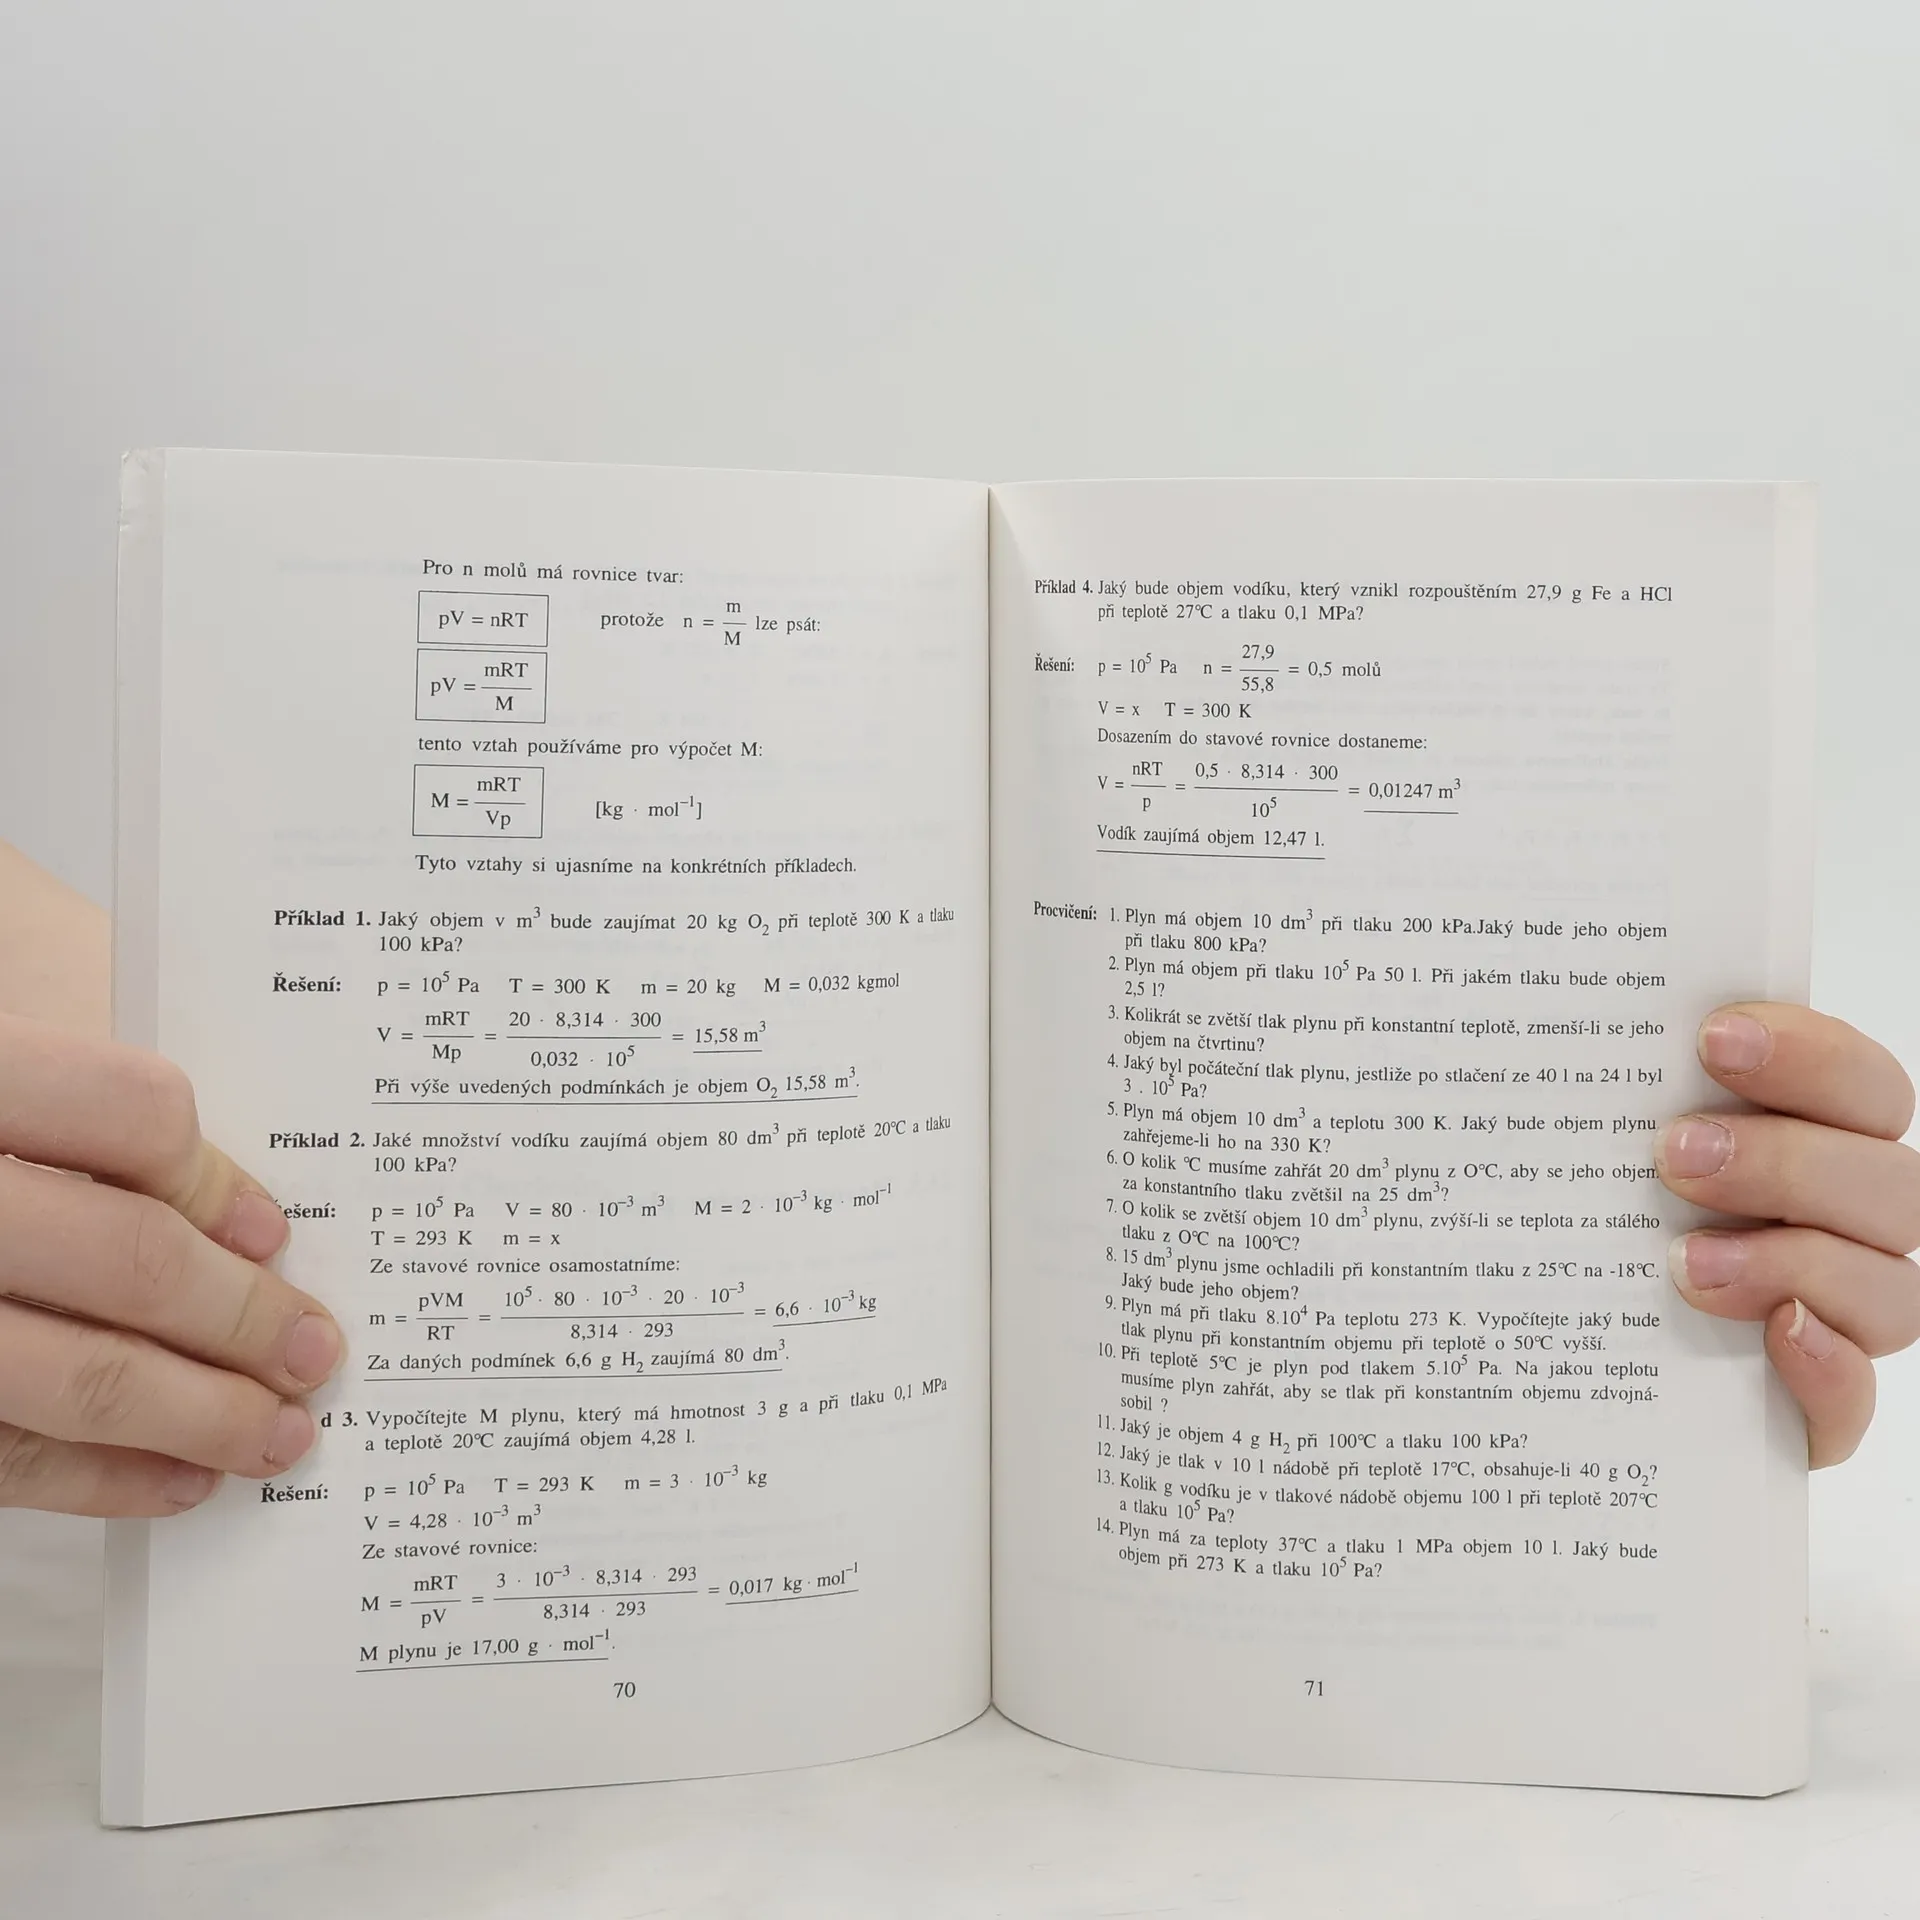 Pro n molů má rovnice tvar:
pV = nRT protože n = m/M lze psát:
pV = mRT/M
tento vztah používáme pro výpočet M:
M = mRT/Vp [kg · mol⁻¹]
Tyto vztahy si ujasníme na konkrétních příkladech.
Příklad 1. Jaký objem v m³ bude zaujímat 20 kg O₂ při teplotě 300 K a tlaku
100 kPa?
Řešení: p = 10⁵ Pa T = 300 K m = 20 kg M = 0,032 kgmol
V = mRT/Mp = 20 · 8,314 · 300/0,032 · 10⁵ = 15,58 m³
Při výše uvedených podmínkách je objem O₂ 15,58 m³.
Příklad 2. Jaké množství vodíku zaujímá objem 80 dm³ při teplotě 20°C a tlaku
100 kPa?
ešení: p = 10⁵ Pa V = 80 · 10⁻³ m³ M = 2 · 10⁻³ kg · mol⁻¹
T = 293 K m = x
Ze stavové rovnice osamostatníme:
m = pVM/RT = 10⁵ · 80 · 10⁻³ · 20 · 10⁻³/8,314 · 293 = 6,6 · 10⁻³ kg
Za daných podmínek 6,6 g H₂ zaujímá 80 dm³.
d 3. Vypočítejte M plynu, který má hmotnost 3 g a při tlaku 0,1 MPa
a teplotě 20°C zaujímá objem 4,28 l.
Řešení: p = 10⁵ Pa T = 293 K m = 3 · 10⁻³ kg
V = 4,28 · 10⁻³ m³
Ze stavové rovnice:
M = mRT/pV = 3 · 10⁻³ · 8,314 · 293/8,314 · 293 = 0,017 kg · mol⁻¹
M plynu je 17,00 g · mol⁻¹.
70
Příklad 4. Jaký bude objem vodíku, který vznikl rozpouštěním 27,9 g Fe a HCl
při teplotě 27°C a tlaku 0,1 MPa?
Řešení: p = 10⁵ Pa n = 27,9/55,8 = 0,5 molů
V = x T = 300 K
Dosazením do stavové rovnice dostaneme:
V = nRT/p = 0,5 · 8,314 · 300/10⁵ = 0,01247 m³
Vodík zaujímá objem 12,47 l.
Procvičení: 1. Plyn má objem 10 dm³ při tlaku 200 kPa.Jaký bude jeho objem
při tlaku 800 kPa?
2. Plyn má objem při tlaku 10⁵ Pa 50 l. Při jakém tlaku bude objem
2,5 l?
3. Kolikrát se zvětší tlak plynu při konstantní teplotě, zmenší-li se jeho
objem na čtvrtinu?
4. Jaký byl počáteční tlak plynu, jestliže po stlačení ze 40 l na 24 l byl
3 . 10⁵ Pa?
5. Plyn má objem 10 dm³ a teplotu 300 K. Jaký bude objem plynu
zahřejeme-li ho na 330 K?
6. O kolik °C musíme zahřát 20 dm³ plynu z O°C, aby se jeho objem
za konstantního tlaku zvětšil na 25 dm³?
7. O kolik se zvětší objem 10 dm³ plynu, zvýší-li se teplota za stálého
tlaku z O°C na 100°C?
8. 15 dm³ plynu jsme ochladili při konstantním tlaku z 25°C na -18°C.
Jaký bude jeho objem?
9. Plyn má při tlaku 8.10⁴ Pa teplotu 273 K. Vypočítejte jaký bude
tlak plynu při konstantním objemu při teplotě o 50°C vyšší.
10. Při teplotě 5°C je plyn pod tlakem 5.10⁵ Pa. Na jakou teplotu
musíme plyn zahřát, aby se tlak při konstantním objemu zdvojná-
sobil ?
11. Jaký je objem 4 g H₂ při 100°C a tlaku 100 kPa?
12. Jaký je tlak v 10 l nádobě při teplotě 17°C, obsahuje-li 40 g O₂?
13. Kolik g vodíku je v tlakové nádobě objemu 100 l při teplotě 207°C
a tlaku 10⁵ Pa?
14. Plyn má za teploty 37°C a tlaku 1 MPa objem 10 l. Jaký bude
objem při 273 K a tlaku 10⁵ Pa?
71